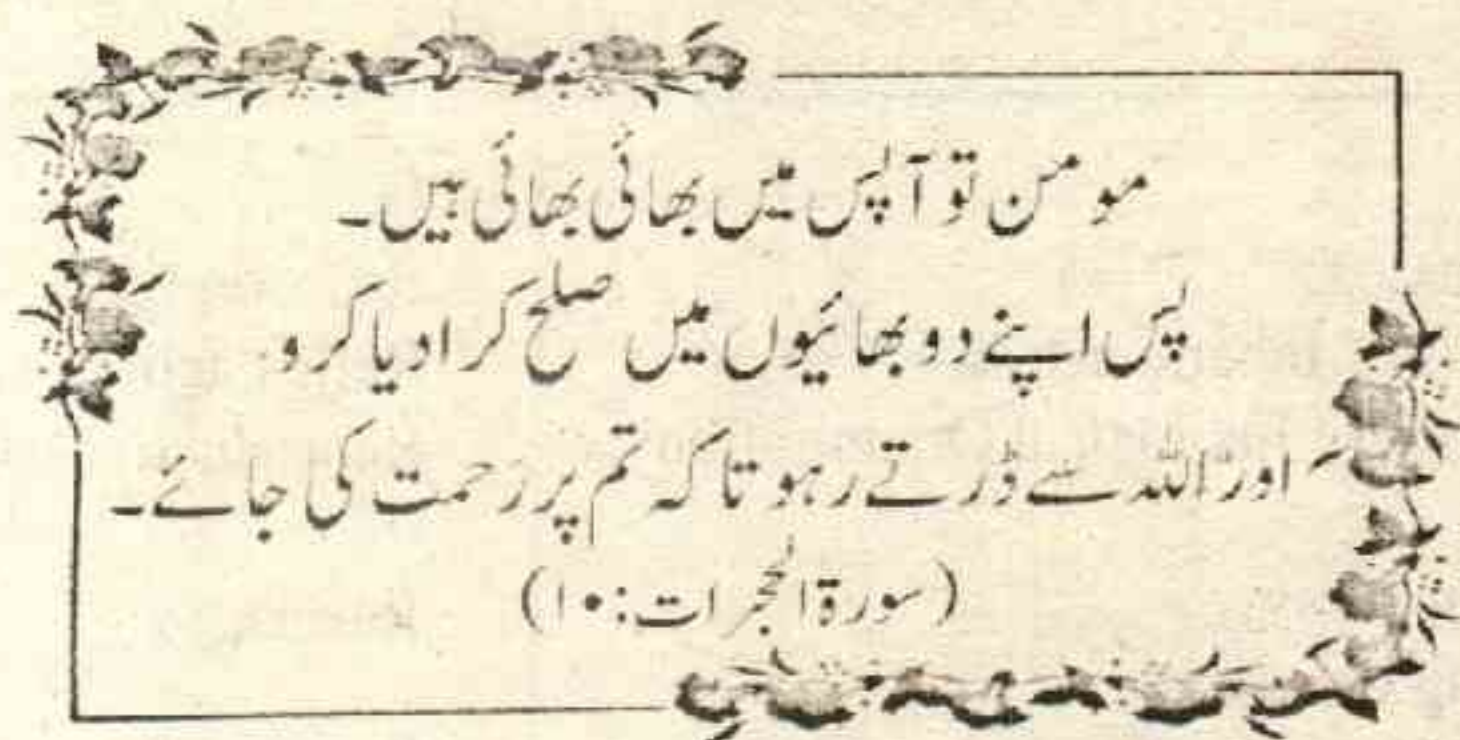 مومن تو آپس میں بھائی بھائی ہیں۔
پس اپنے دو بھائیوں میں صلح کرا دیا کرو
اور اللہ سے ڈرتے رہو تاکہ تم پر رحمت کی جائے۔
(سورۃ الحجرات: ۱۰)